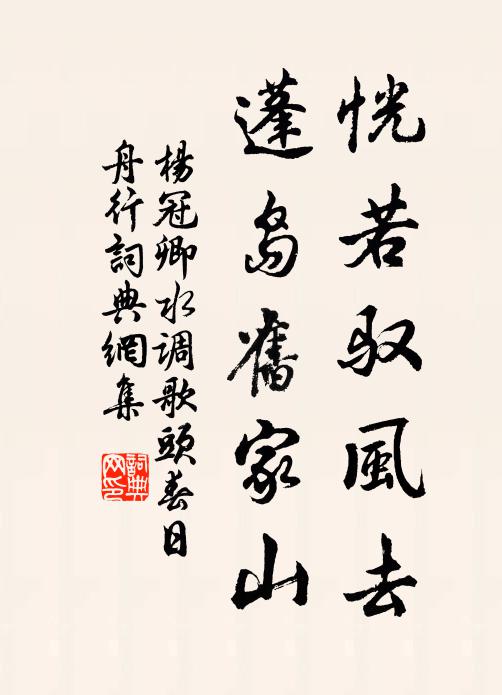 恍若驭風去
蓬島舊家山
楊冠卿水调歌頭春日
舟行詞典網集
詞典网印